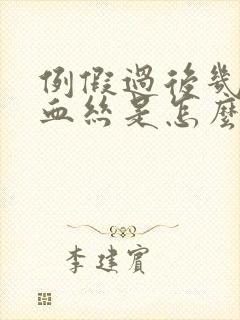 例假過後幾
血絲是怎麼
李建賓